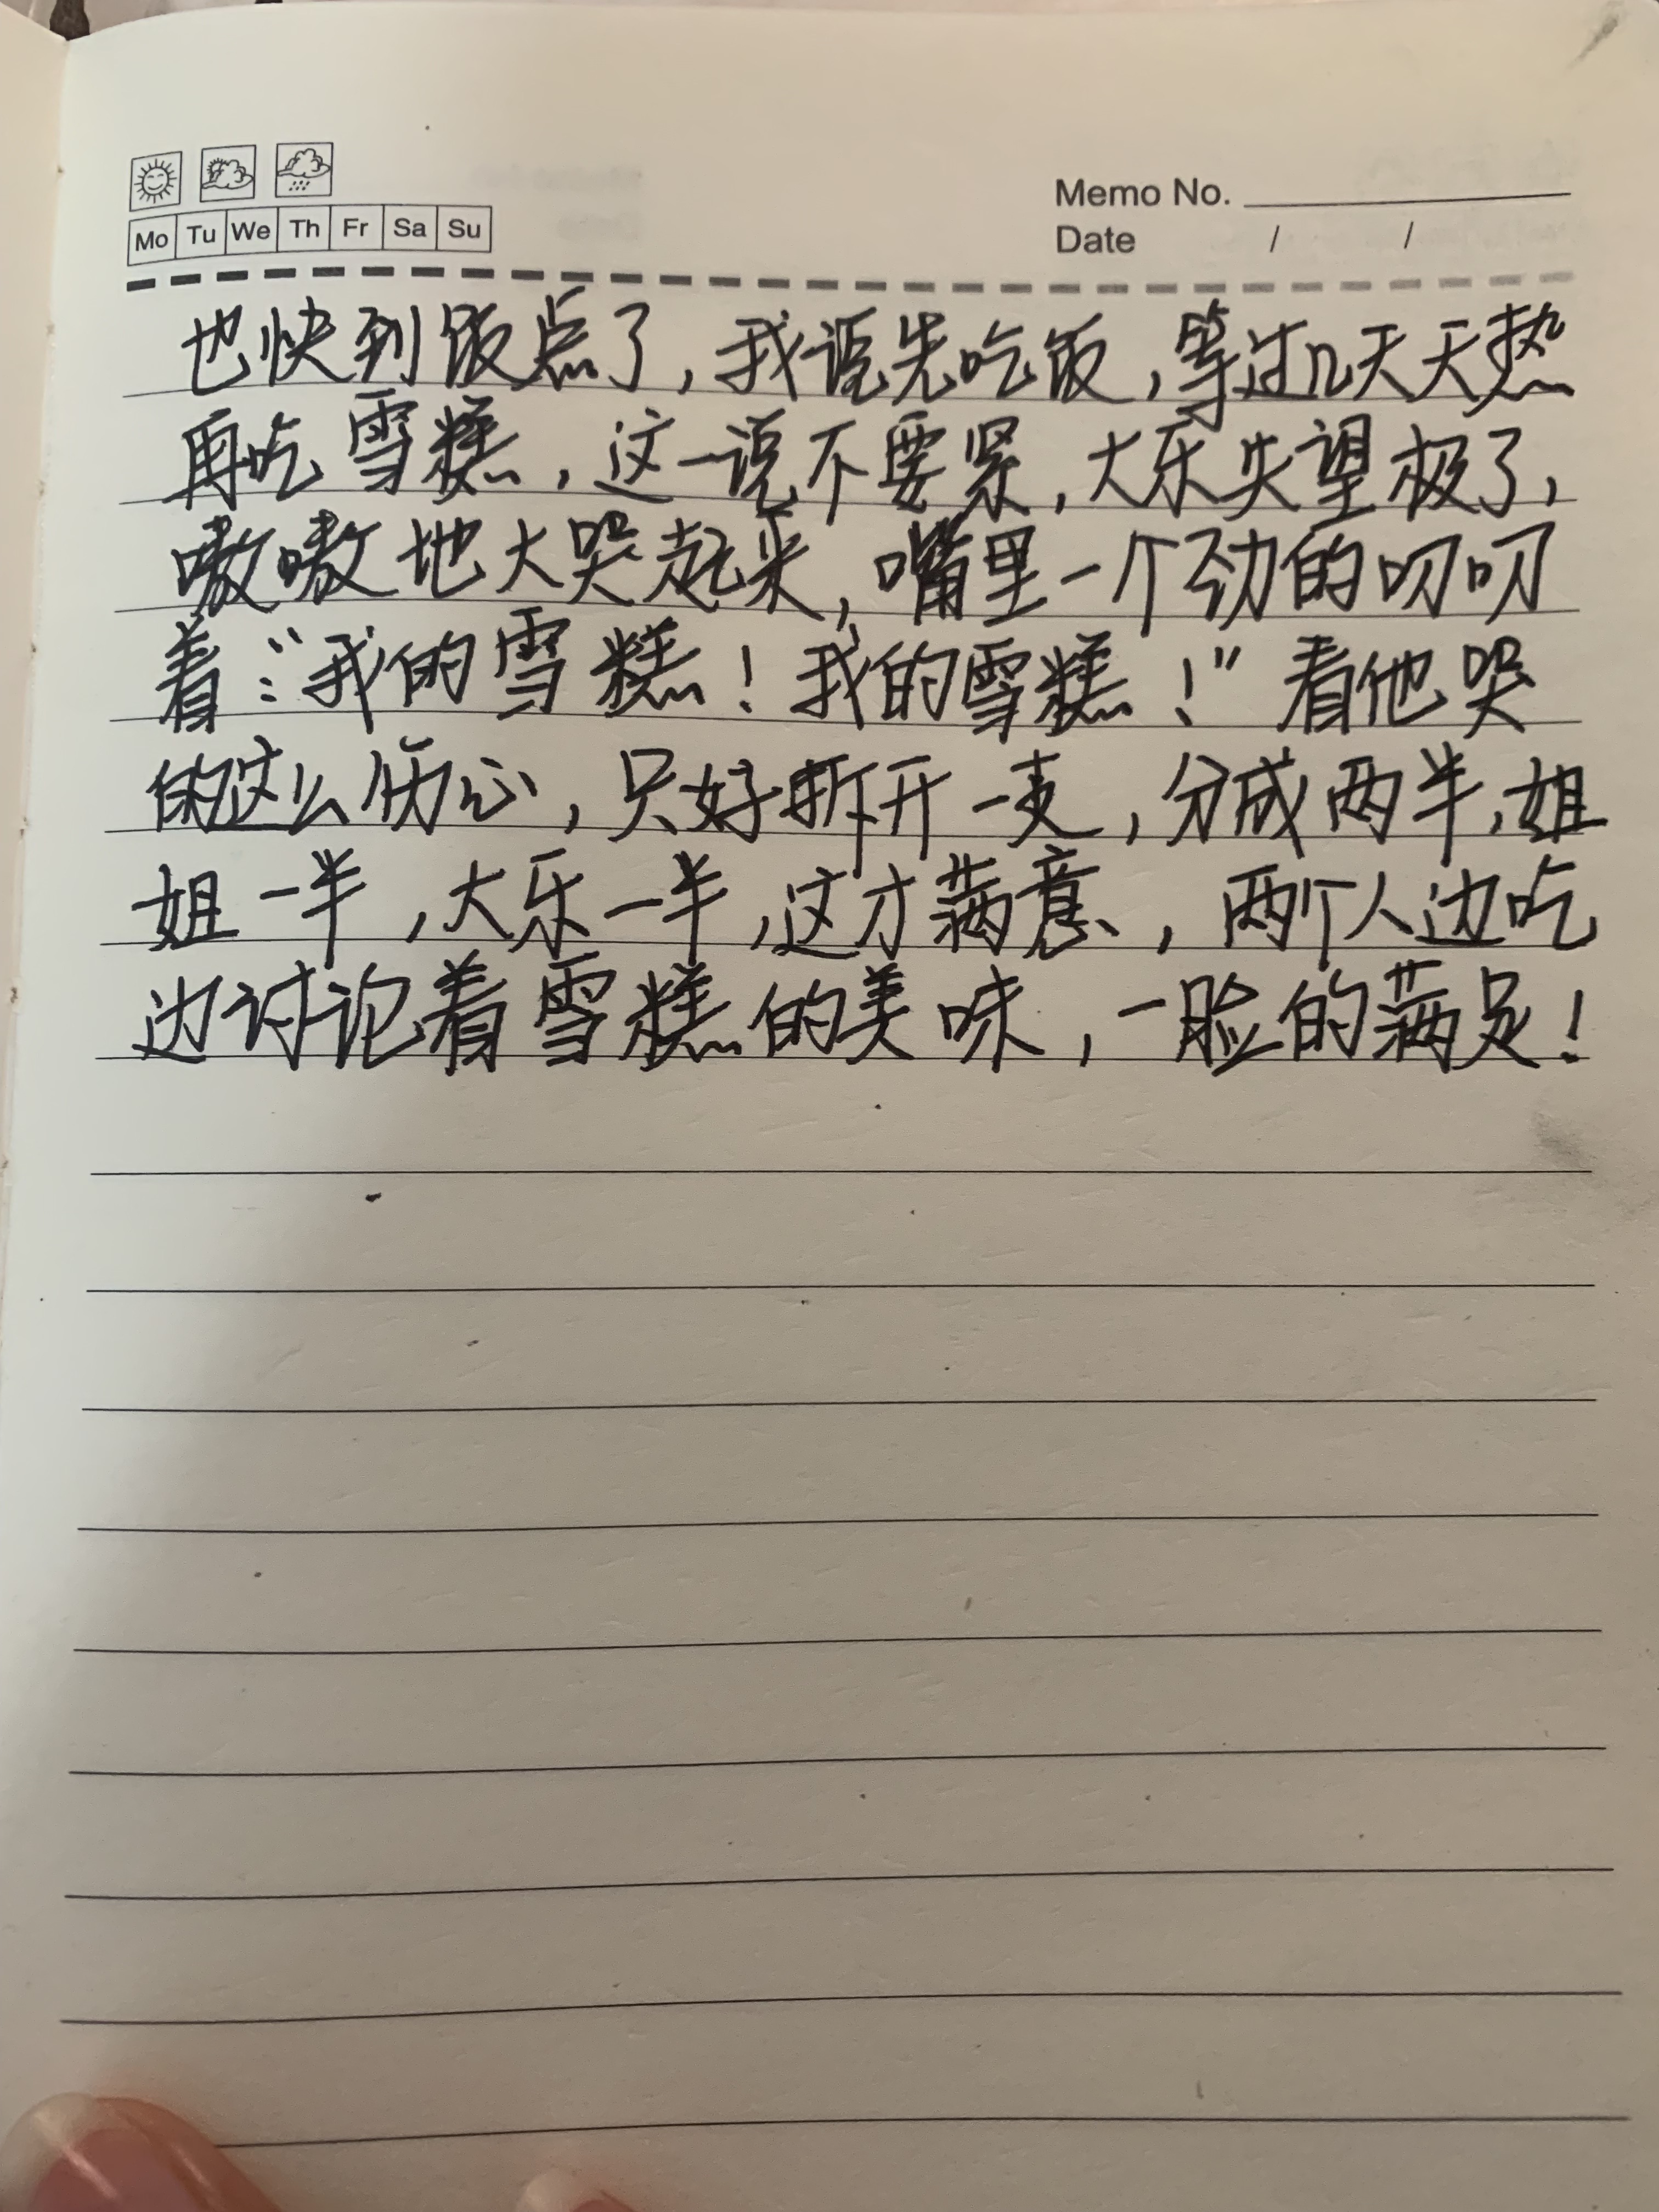 Mo Tu We Th Fr Sa Su
Memo No.
Date / /
也快到饭点了,我说先吃饭,等过几天天热
再吃雪糕,这一说不要紧,大乐失望极了,
嗷嗷地大哭起来,嘴里一个劲的叨叨
着:“我的雪糕!我的雪糕!”看他哭
的这么伤心,只好拆开一支,分成两半,姐
姐一半,大乐一半,这才满意,两个人边吃
边讨论着雪糕的美味,一脸的满足!